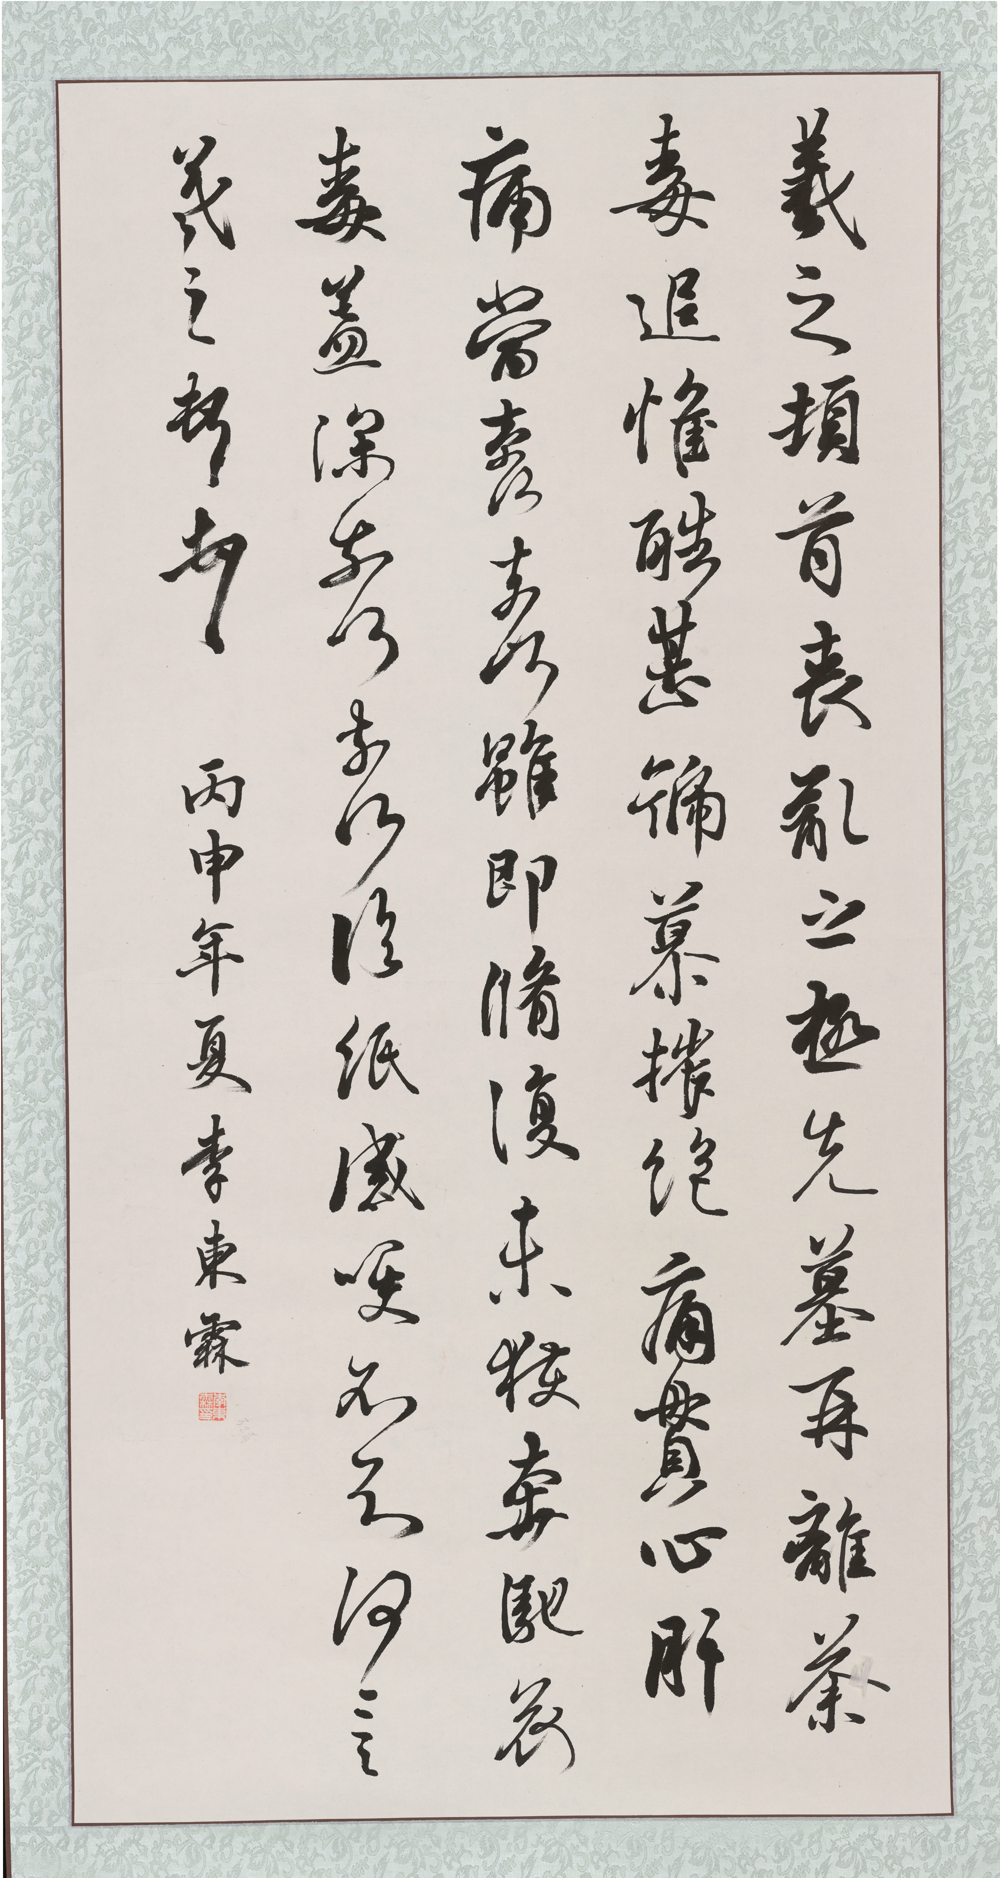 羲之頓首喪亂之極先墓再離荼
毒追惟酷甚號慕摧絶痛貫心肝
痛當奈何奈何雖即脩復未獲奔馳哀
毒益深奈何奈何臨紙感哽不知何言
羲之頓首頓首 丙申年夏李東霖